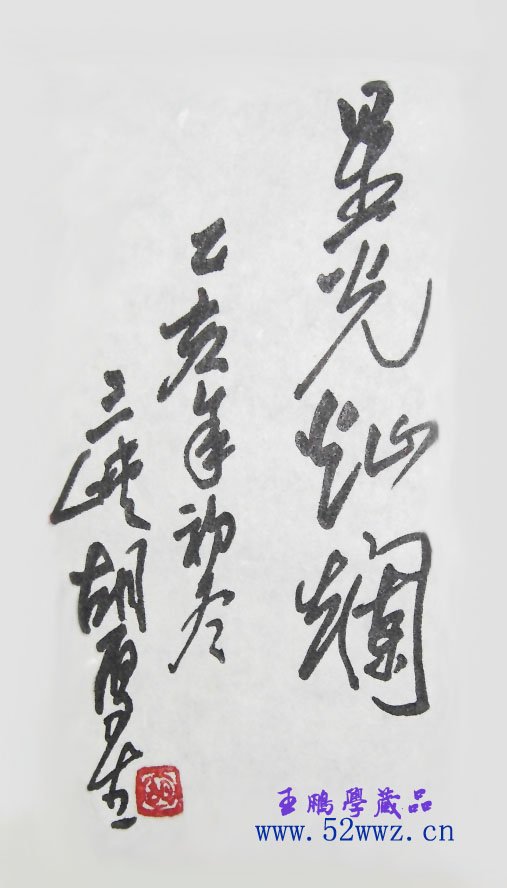 星光灿烂
乙亥年初冬
三峡 胡
王鵬學藏品
www.52wwz.cn